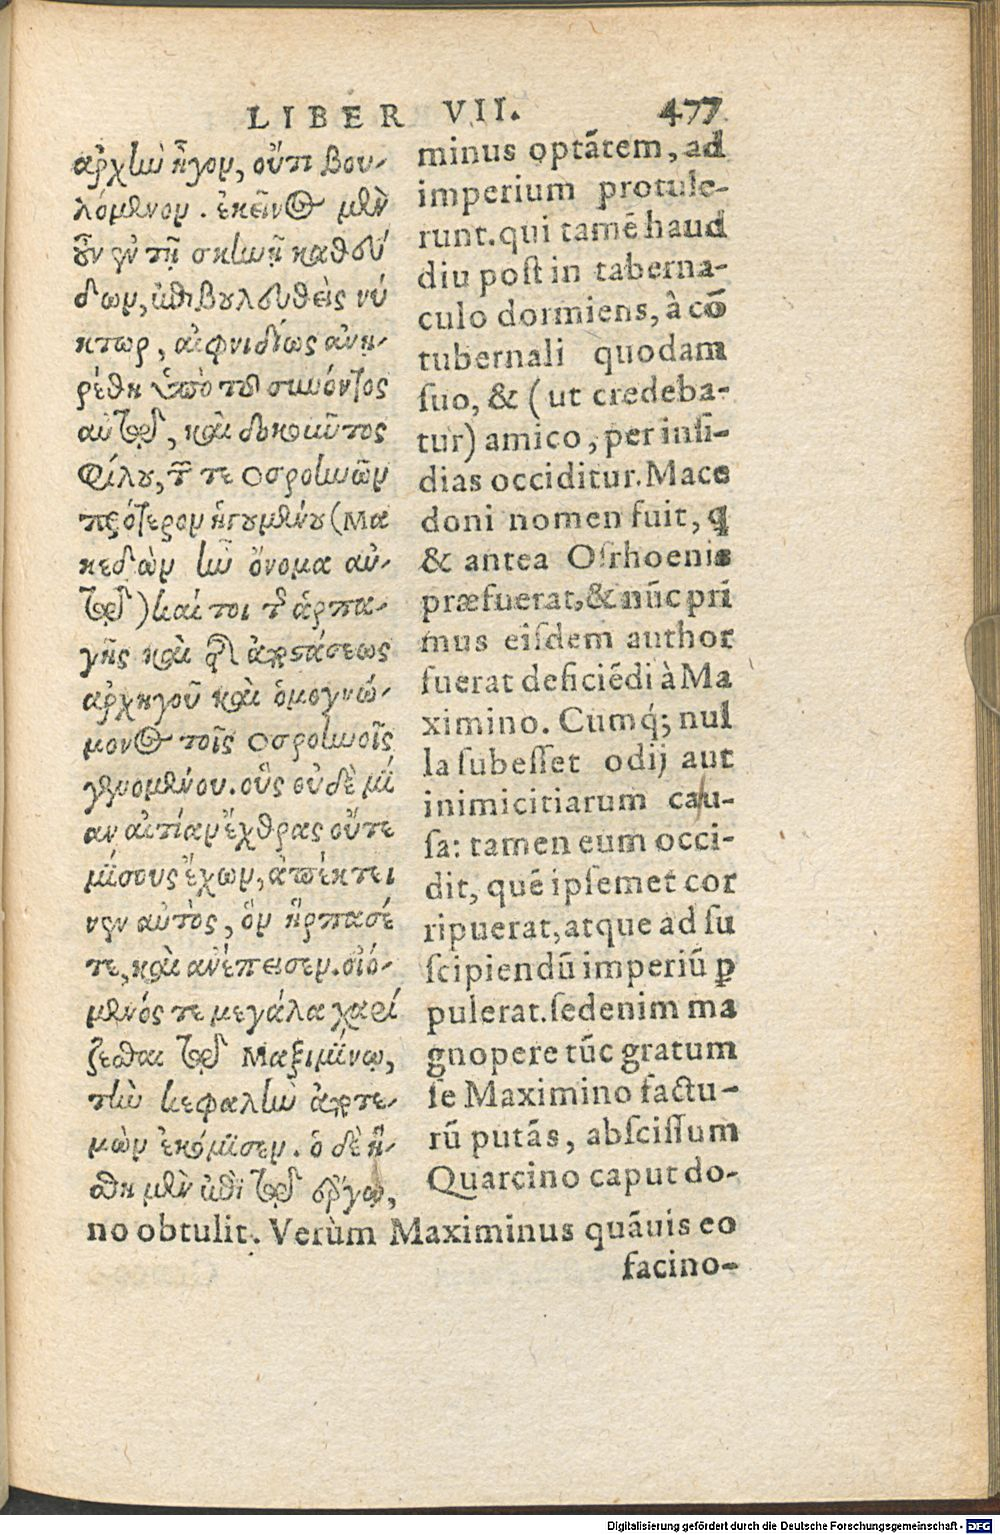 LIBER VII. 477
ἀρχὴν ἦγον, οὔτι βου-
λόμενον. ἐκεῖνος μὲν
οὖν ἐν τῇ σκηνῇ καθεύ
δων, ἐπιβουλευθεὶς νύ
κτωρ, αἰφνιδίως ἀνῃ-
ρέθη ὑπὸ τοῦ συνόντος
αὐτῷ, καὶ δοκοῦντος
φίλου, τῶν τε Οσροηνῶν
πρότερον ἡγουμένου (Μα
κεδὼν ἦν ὄνομα αὐ-
τῷ) καί τοι τῆς ἁρπα-
γῆς καὶ τῆς ἀποστάσεως
ἀρχηγοῦ καὶ ὁμογνώ-
μονος τοῖς Οσροηνοῖς
γενομένου. οὓς οὐδὲ μί
αν αἰτίαν ἔχθρας οὔτε
μίσους ἔχων, ἀπέκτει
νεν αὐτὸς, ὃν ἥρπασέ
τε, καὶ ἀνέπεισεν. οἰό-
μενός τε μεγάλα χαρί
ζεσθαι τῷ Μαξιμίνῳ,
τὴν κεφαλὴν ἀποτε-
μὼν ἐκόμισεν. ὁ δὲ ἥ-
σθη μὲν ἐπὶ τῷ ἔργῳ,
minus optãtem, ad
imperium protule-
runt. qui tamẽ haud
diu post in taberna-
culo dormiens, à cõ
tubernali quodam
suo, & (ut credeba-
tur) amico, per insi-
dias occiditur. Mace
doni nomen fuit, ꝗ
& antea Osrhoenis
præfuerat, & nũc pri
mus eisdem author
fuerat deficiẽdi à Ma
ximino. Cumq́; nul
la subesset odij aut
inimicitiarum cau-
sa: tamen eum occi-
dit, quẽ ipsemet cor
ripuerat, atque ad su
scipiendũ imperiũ ꝑ
pulerat. sed enim ma
gnopere tũc gratum
se Maximino factu-
rũ putãs, abscissum
Quarcino caput do-
no obtulit. Verùm Maximinus quãuis eo
facino-
Digitalisierung gefördert durch die Deutsche Forschungsgemeinschaft - DFG